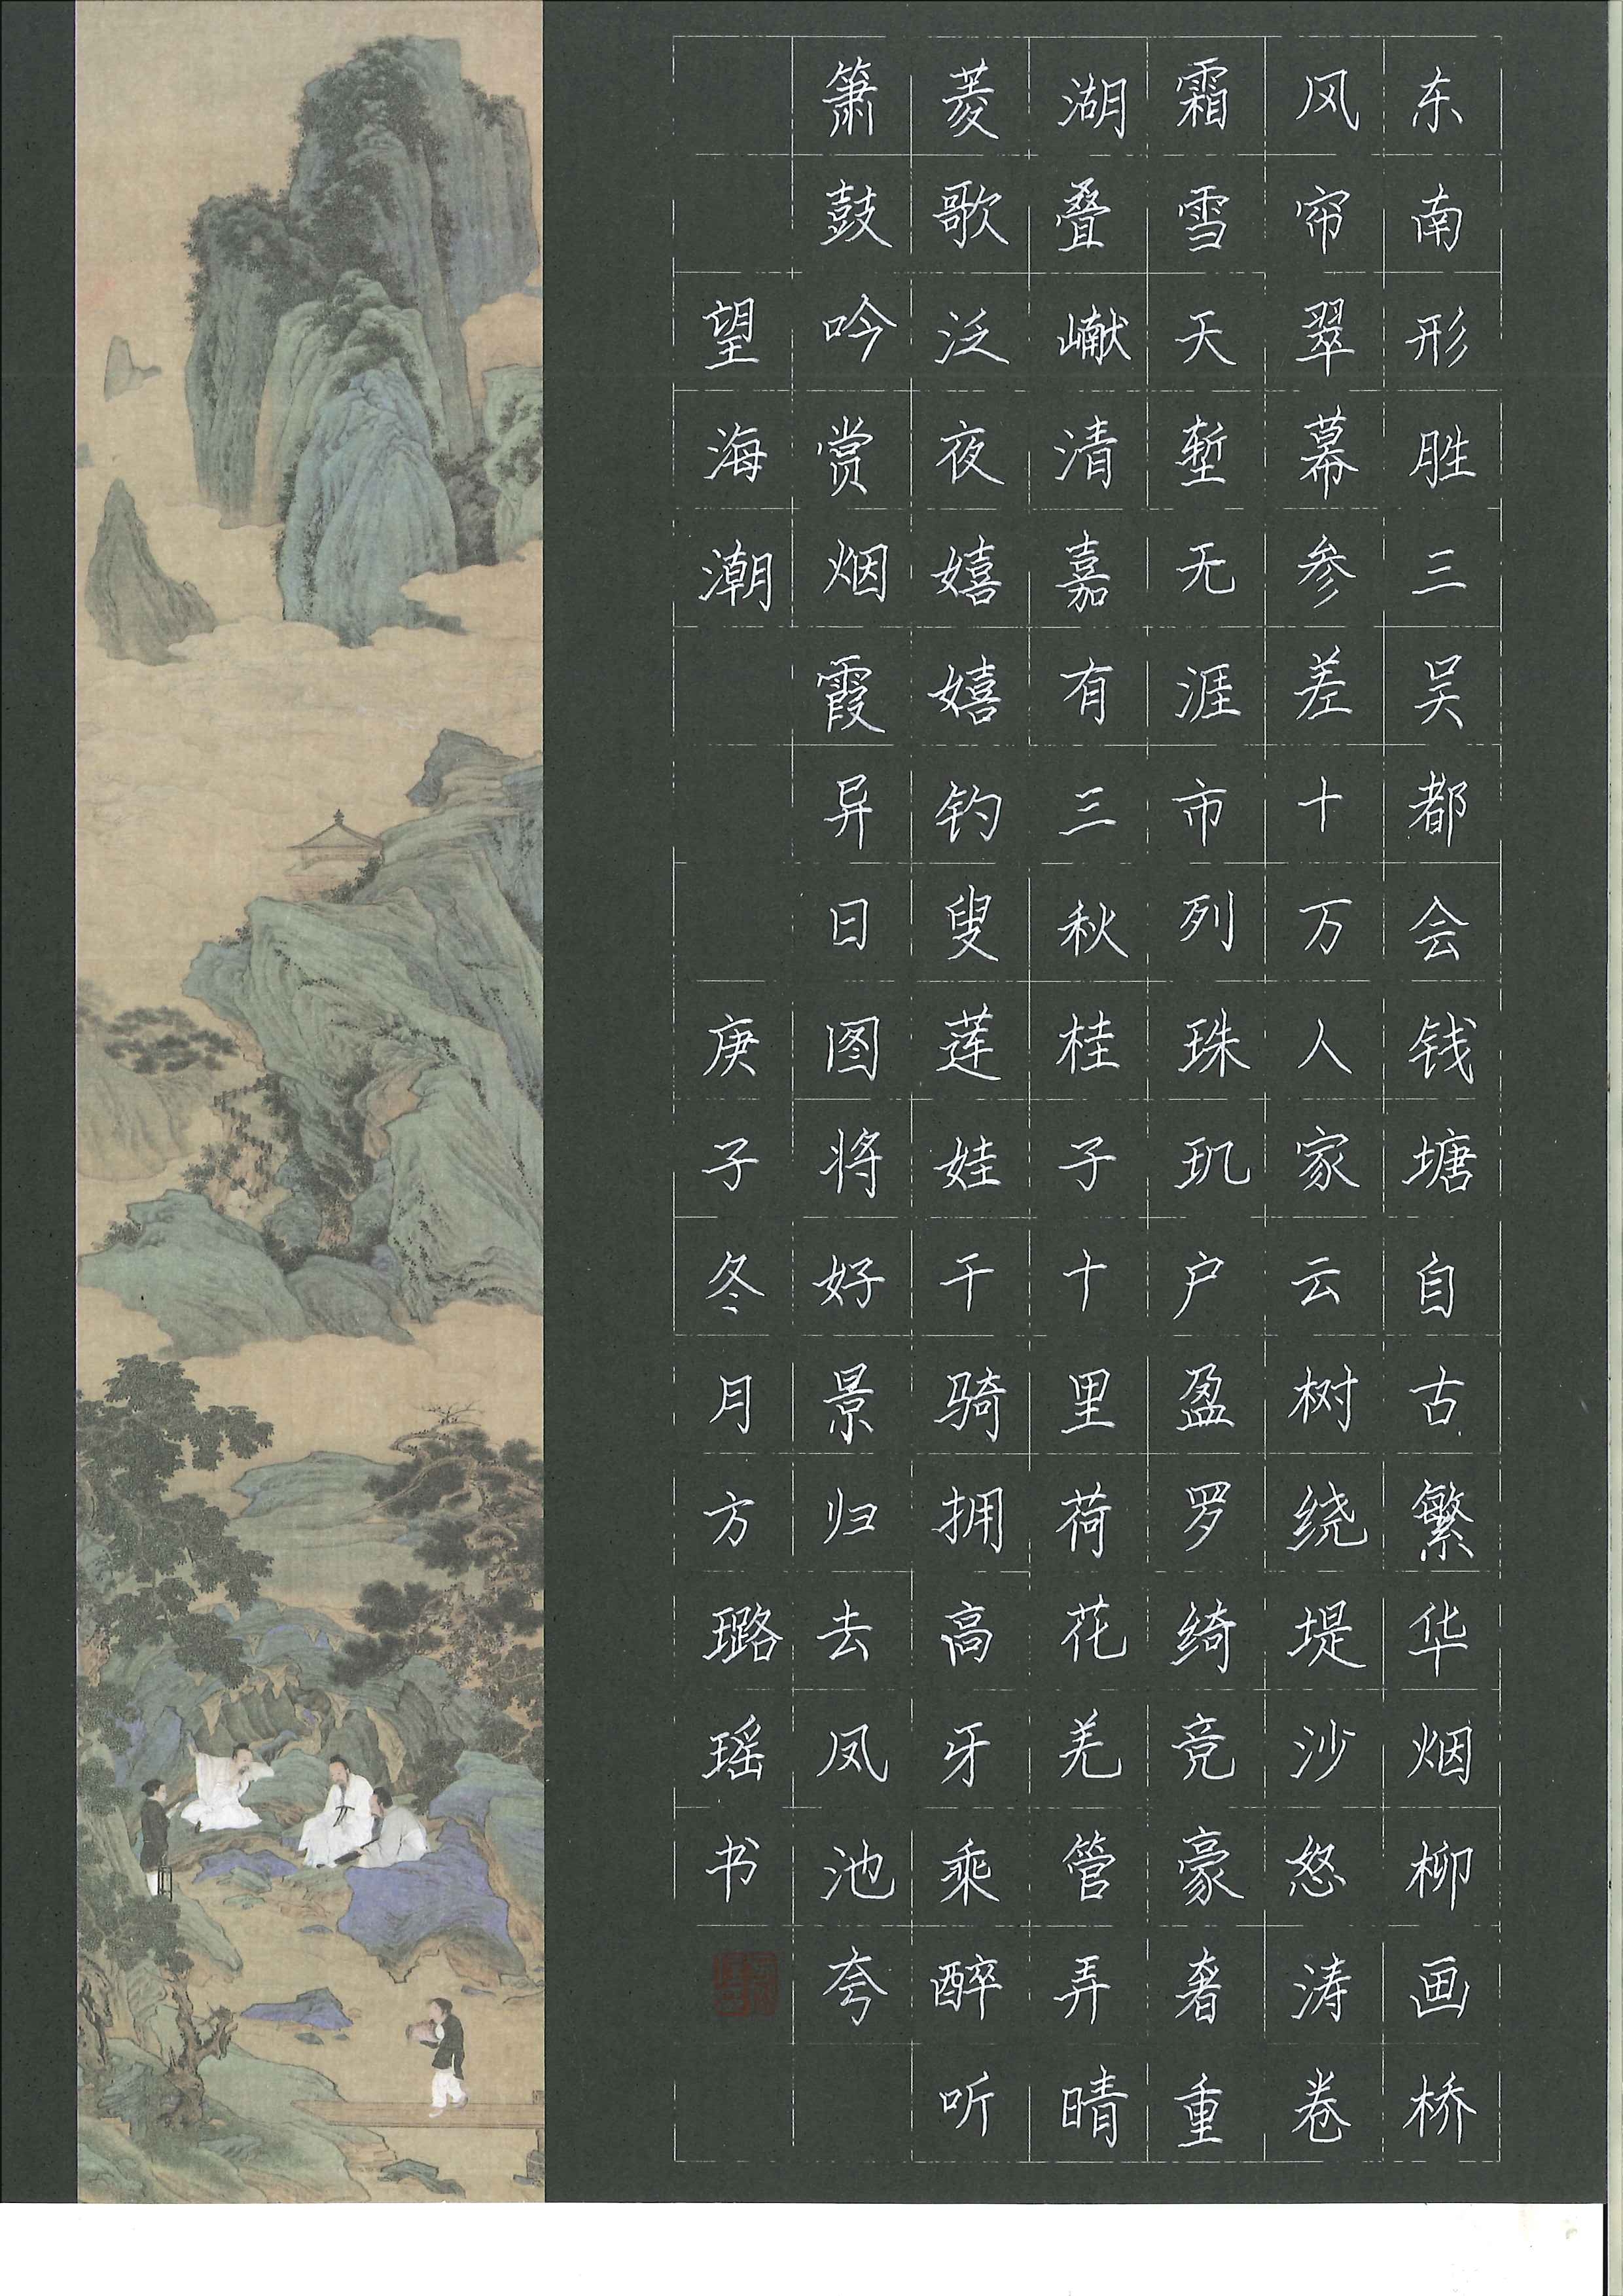 东南形胜三吴都会钱塘自古繁华烟柳画桥
风帘翠幕参差十万人家云树绕堤沙怒涛卷
霜雪天堑无涯市列珠玑户盈罗绮竞豪奢重
湖叠𪩘清嘉有三秋桂子十里荷花羌管弄晴
菱歌泛夜嬉嬉钓叟莲娃千骑拥高牙乘醉听
箫鼓吟赏烟霞异日图将好景归去凤池夸
望海潮 庚子冬月方璐瑶书